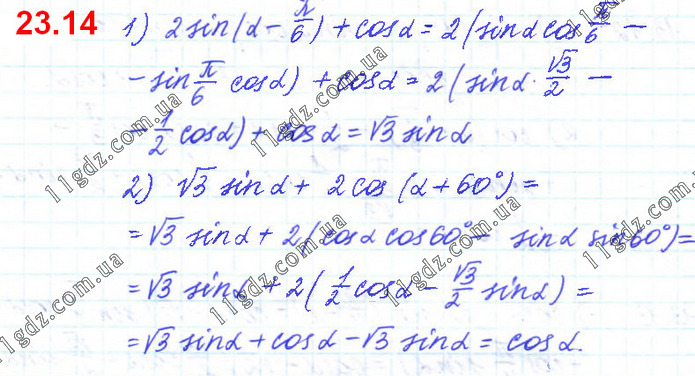 23.14
1) 2 sin(α − π/6) + cosα = 2(sinα cos π/6 −
− sin π/6 cosα) + cosα = 2(sinα · √3/2 −
− 1/2 cosα) + cosα = √3 sinα
2) √3 sinα + 2cos (α + 60°) =
= √3 sinα + 2(cosα cos60° − sinα sin60°) =
= √3 sinα + 2(1/2 cosα − √3/2 sinα) =
= √3 sinα + cosα − √3 sinα = cosα.
11gdz.com.ua
11gdz.com.ua
11gdz.com.ua
11gdz.com.ua
11gdz.com.ua
11gdz.com.ua
11gdz.com.ua